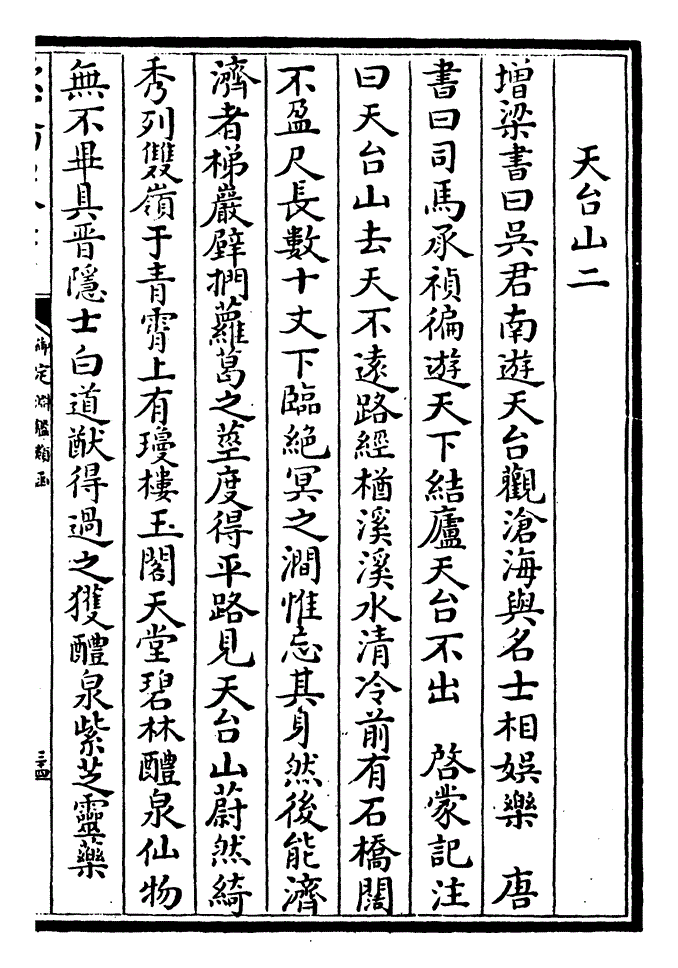 天台山二
增梁書曰吳君南遊天台觀滄海與名士相娛樂　唐
書曰司馬承禎徧遊天下結廬天台不出　啓蒙記注
曰天台山去天不遠路經楢溪溪水清冷前有石橋闊
不盈尺長數十丈下臨絶冥之澗惟忘其身然後能濟
濟者梯巖壁捫蘿葛之莖度得平路見天台山蔚然綺
秀列雙嶺于青霄上有瓊樓玉閣天堂碧林醴泉仙物
無不畢具晉隱士白道猷得過之獲醴泉紫芝靈藥
御定淵鑑類函
三十四